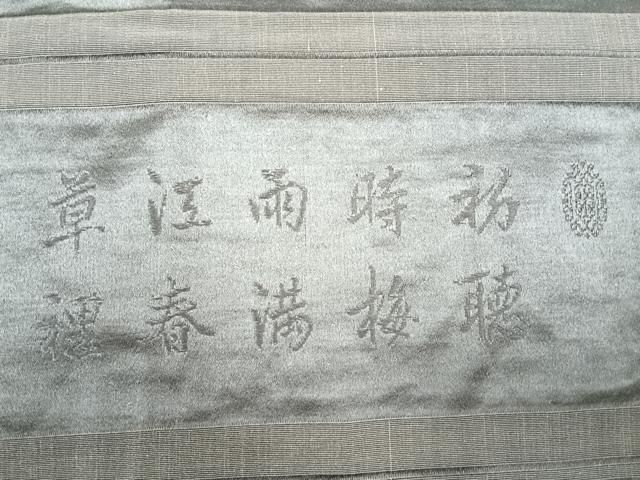 初聽
時梅
雨滿
江春
草